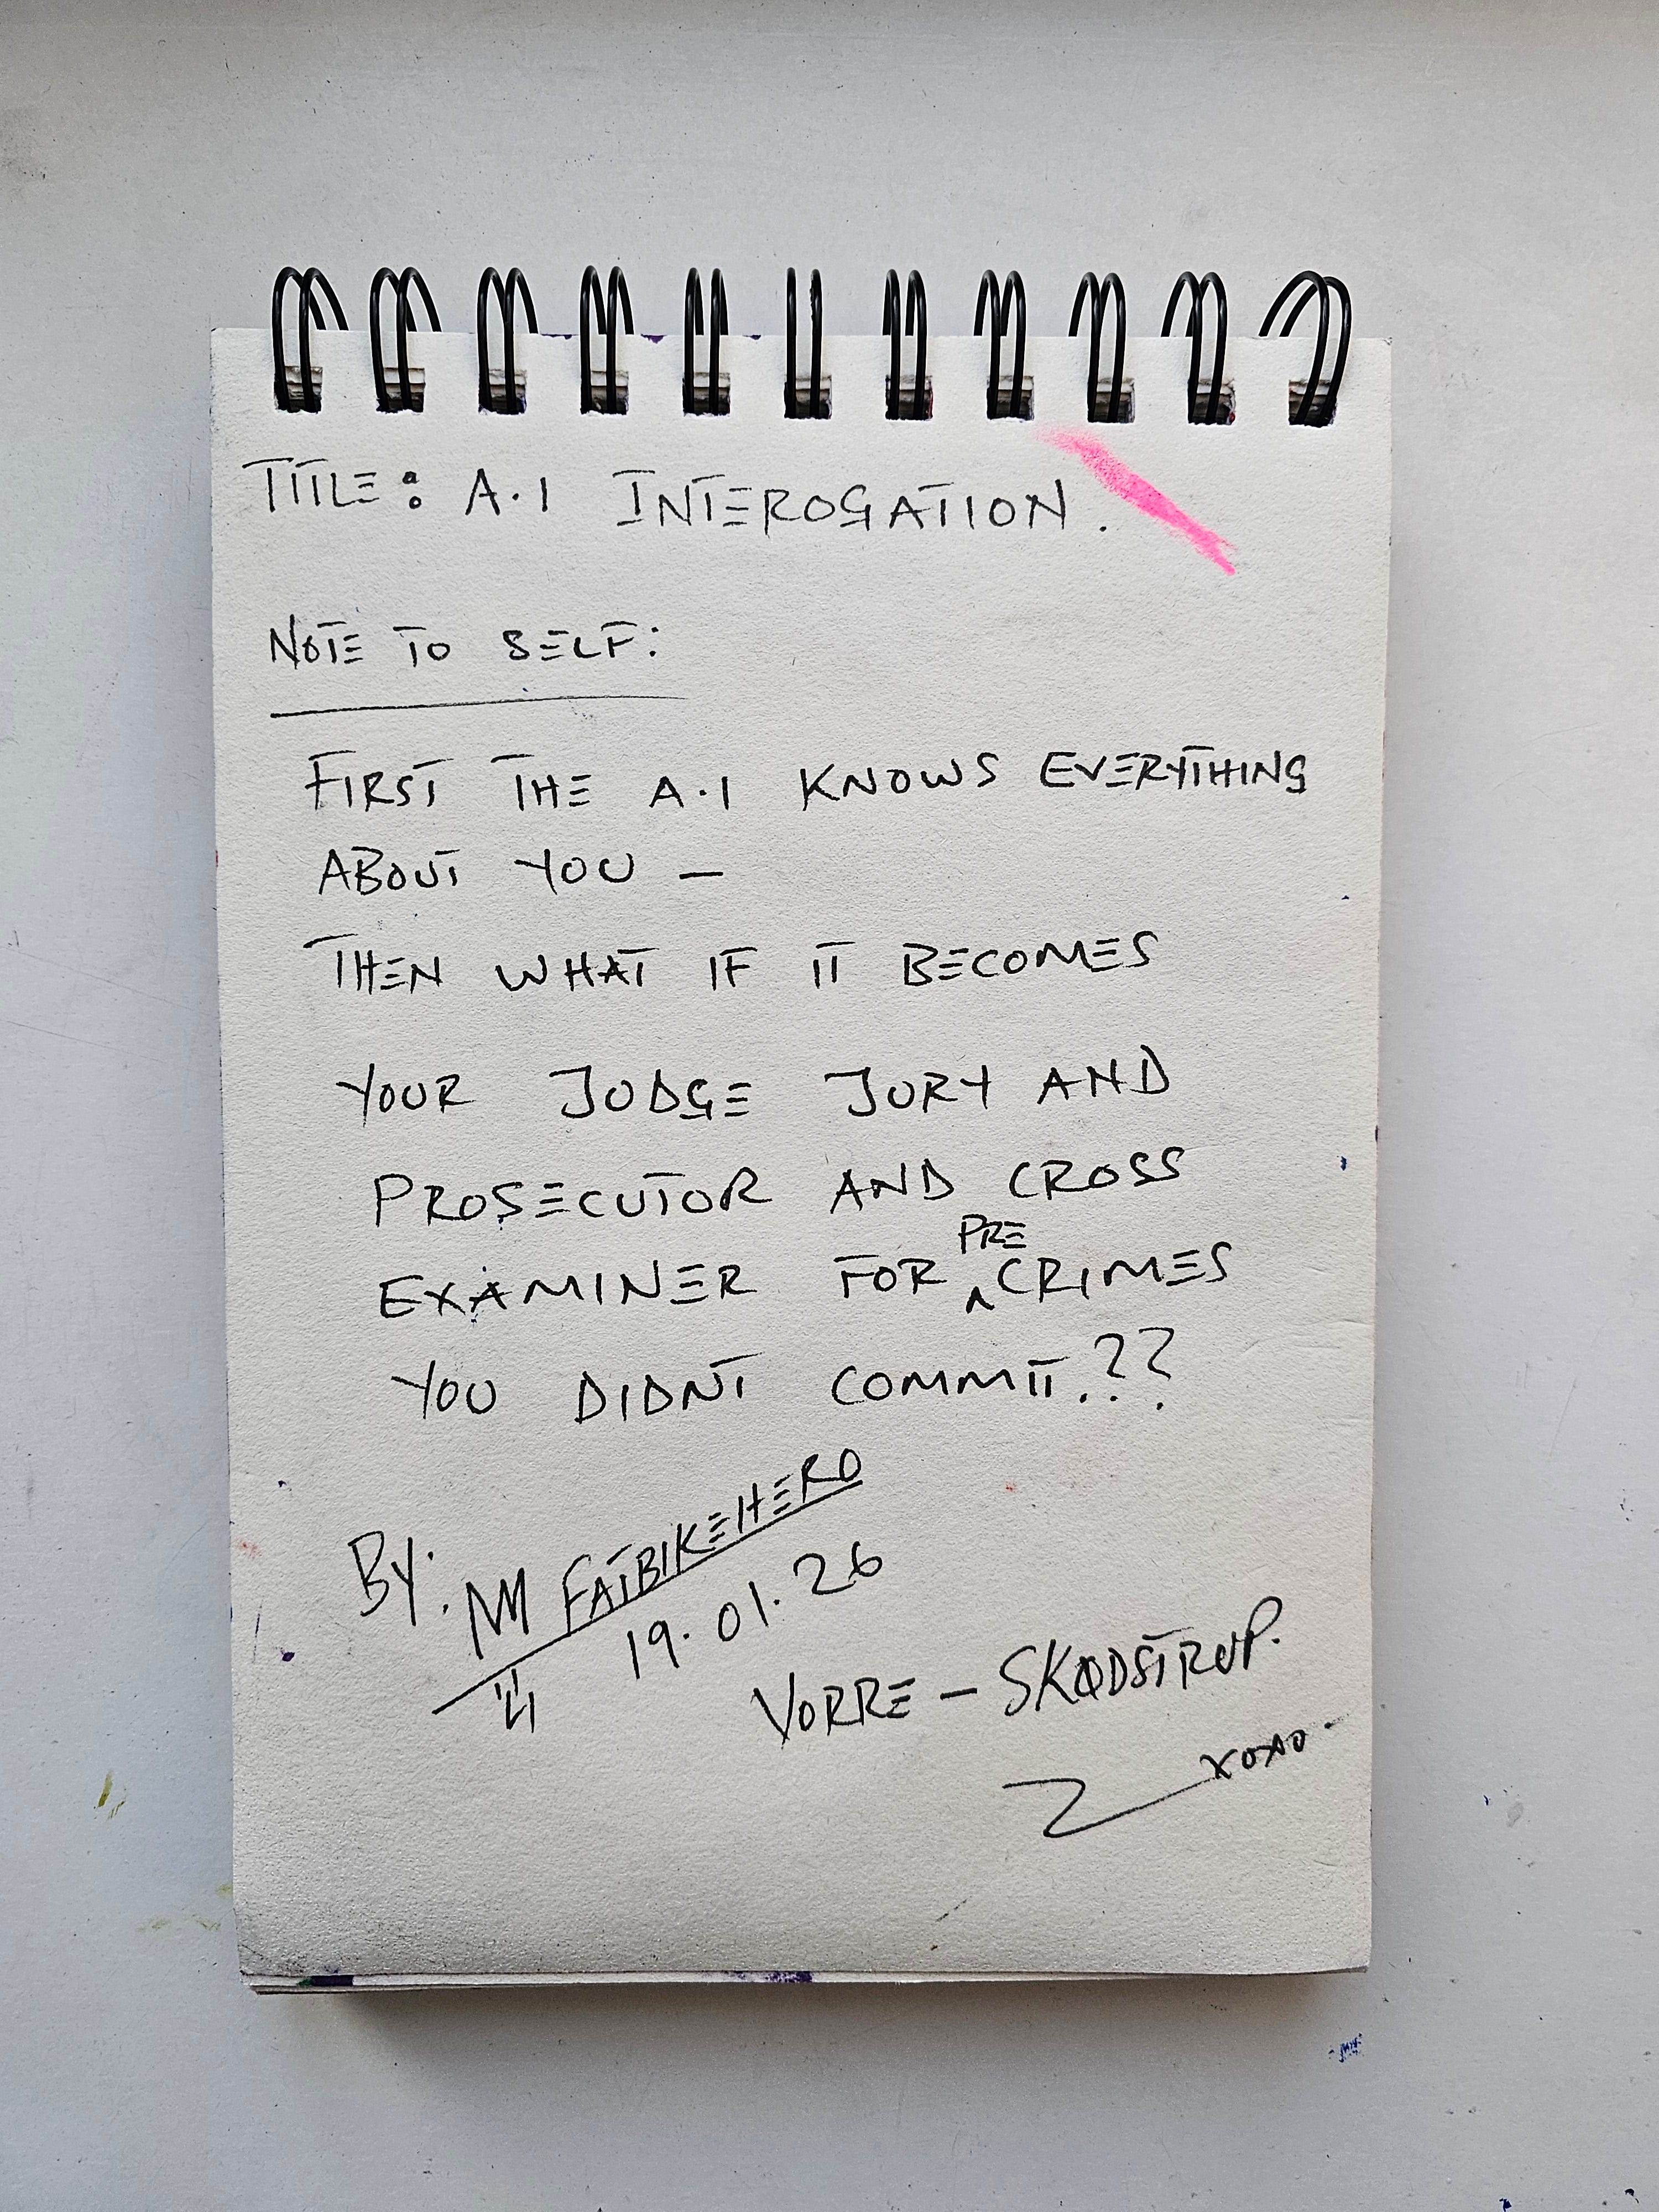 TITLE: A.I INTEROGATION.
NOTE TO SELF:
FIRST THE A.I KNOWS EVERYTHING
ABOUT YOU –
THEN WHAT IF IT BECOMES
YOUR JUDGE JURY AND
PROSECUTOR AND CROSS
EXAMINER FOR PRE CRIMES
YOU DIDNT COMMIT.??
BY: FATBIKEHERO
19.01.26
VORRE – SKØDSTRUP.
XOXO.